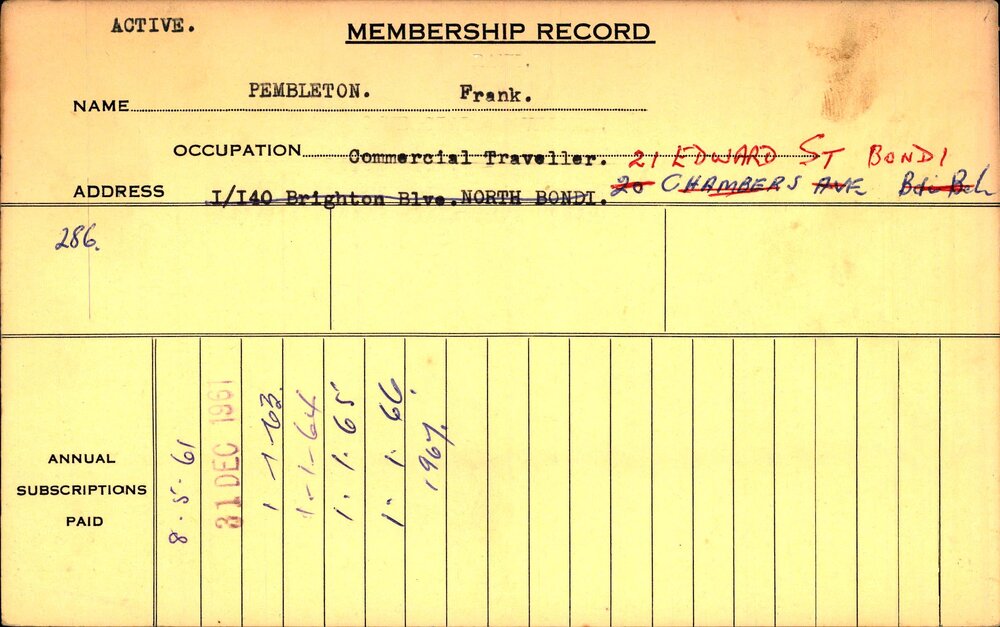 ACTIVE.
MEMBERSHIP RECORD
NAME PEMBLETON. Frank.
OCCUPATION Commercial Traveller. 21 EDWARD ST BONDI
ADDRESS I/I40 Brighton Blve. NORTH BONDI. 20 CHAMBERS AVE Bdi Bch
286.
ANNUAL SUBSCRIPTIONS PAID
8.5.61
31 DEC 1961
1-1-63.
1-1-64
1.1.65
1.1.66.
1967.